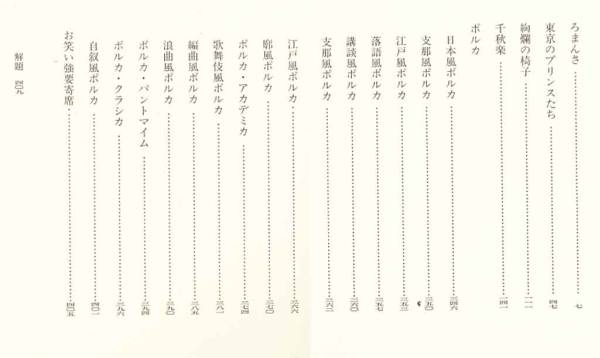 ろまんさ……七
東京のプリンスたち……四七
絢爛の椅子……一一一
千秋楽……一四一
ポルカ
日本風ポルカ……三四六
支那風ポルカ……三五〇
江戸風ポルカ……三五三
落語風ポルカ……三五七
講談風ポルカ……三六〇
支那風ポルカ……三六二
江戸風ポルカ……三六六
廓風ポルカ……三七〇
ポルカ・アカデミカ……三七四
歌舞伎風ポルカ……三八一
編曲風ポルカ……三八五
浪曲風ポルカ……三九〇
ポルカ・パントマイム……三九四
ポルカ・クラシカ……三九六
自叙風ポルカ……四〇一
お笑い強要寄席……四〇五
解題 四〇九